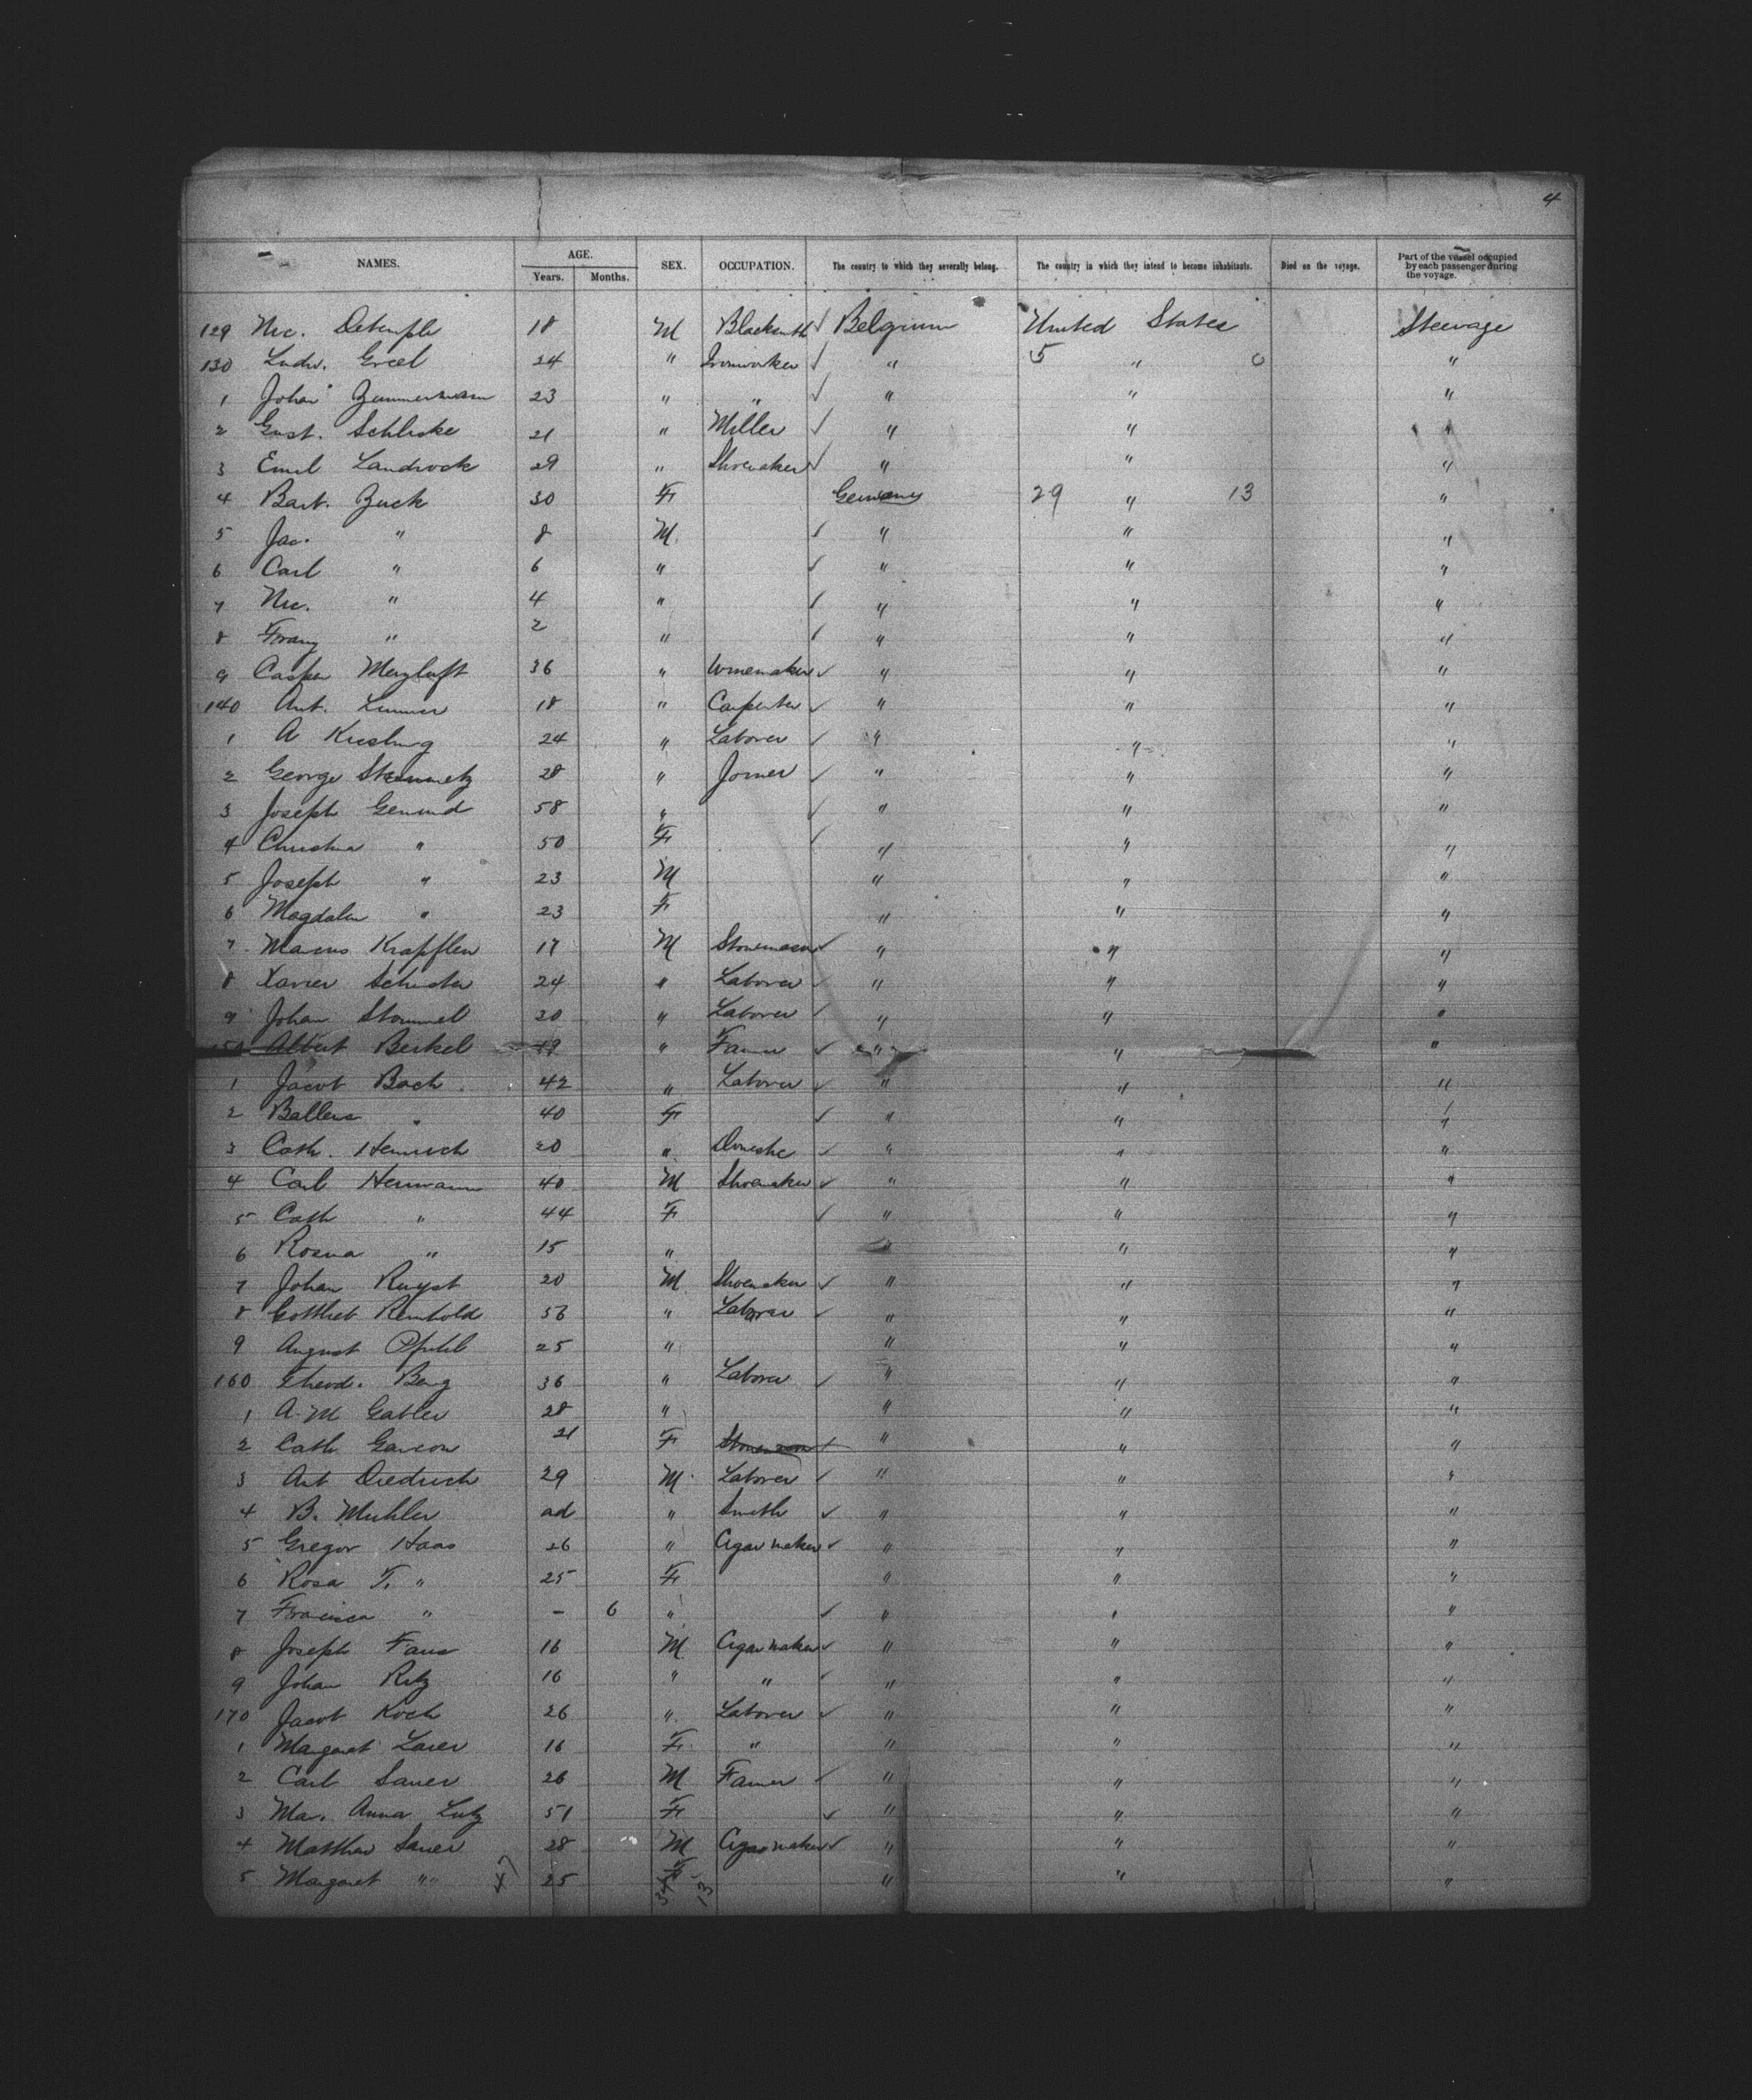 4
NAMES. AGE. Years. Months. SEX. OCCUPATION. The country to which they severally belong. The country in which they intend to become inhabitants. Died on the voyage. Part of the vessel occupied by each passenger during the voyage.
129 Nic. Detemple 18 M Blacksmith Belgium United States Steerage
130 Ludw. Greel 24 " Ironworker " 5 " 0 "
1 Johan Zimmermann 23 " " " " "
2 Gust. Schliske 21 " Miller " " "
3 Emil Landrock 29 " Shoemaker " " "
4 Bart. Zuck 30 F Germany 29 " 13 "
5 Jac. " 8 M " " "
6 Carl " 6 " " " "
7 Nic. " 4 " " " "
8 Franz " 2 " " " "
9 Casper Merzluft 36 " Winemaker " " "
140 Ant. Limmer 18 " Carpenter " " "
1 A Kriesburg 24 " Laborer " " "
2 George Steinmetz 28 " Joiner " " "
3 Joseph Gemind 58 " " " "
4 Christina " 50 F " " "
5 Joseph " 23 M " " "
6 Magdalen " 23 F " " "
7 Marcus Krapflen 17 M Stonemason " " "
8 Xavier Schuster 24 " Laborer " " "
9 Johan Stommel 20 " Laborer " " "
150 Albert Berkel 19 " Farmer " " "
1 Jacob Bach 42 " Laborer " " "
2 Ballena " 40 F " " "
3 Cath. Heinrich 20 " Domestic " " "
4 Carl Hermann 40 M Shoemaker " " "
5 Cath " 44 F " " "
6 Rosna " 15 " " " "
7 Johan Ruyst 20 M Shoemaker " " "
8 Gottlieb Reinhold 56 " Laborer " " "
9 August Pfuhl 25 " " " "
160 Theod. Berg 36 " Laborer " " "
1 A. M Gabler 28 " " " "
2 Cath Garcon 21 F Stonemason " " "
3 Ant Diedrich 29 M Laborer " " "
4 B. Muhler ad " Smith " " "
5 Gregor Haas 26 " Cigarmaker " " "
6 Rosa F. " 25 F " " "
7 Francisca " - 6 " " " "
8 Joseph Faus 16 M Cigarmaker " " "
9 Johan Ritz 16 " " " " "
170 Jacob Koch 26 " Laborer " " "
1 Margaret Laier 16 F " " " "
2 Carl Sauer 26 M Farmer " " "
3 Ma. Anna Lutz 51 F " " "
4 Matthew Sauer 28 M Cigarmaker " " "
5 Margaret " 47 25 F 34 13 " " "